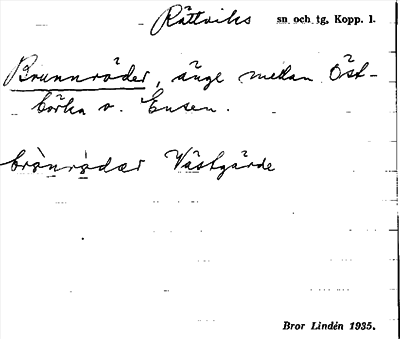 Rättviks sn och tg, Kopp. l.
Brunnröder, änge mellan Öst-
börka o. Ensen.
brònrò̤dær Västgärde
Bror Lindén 1935.